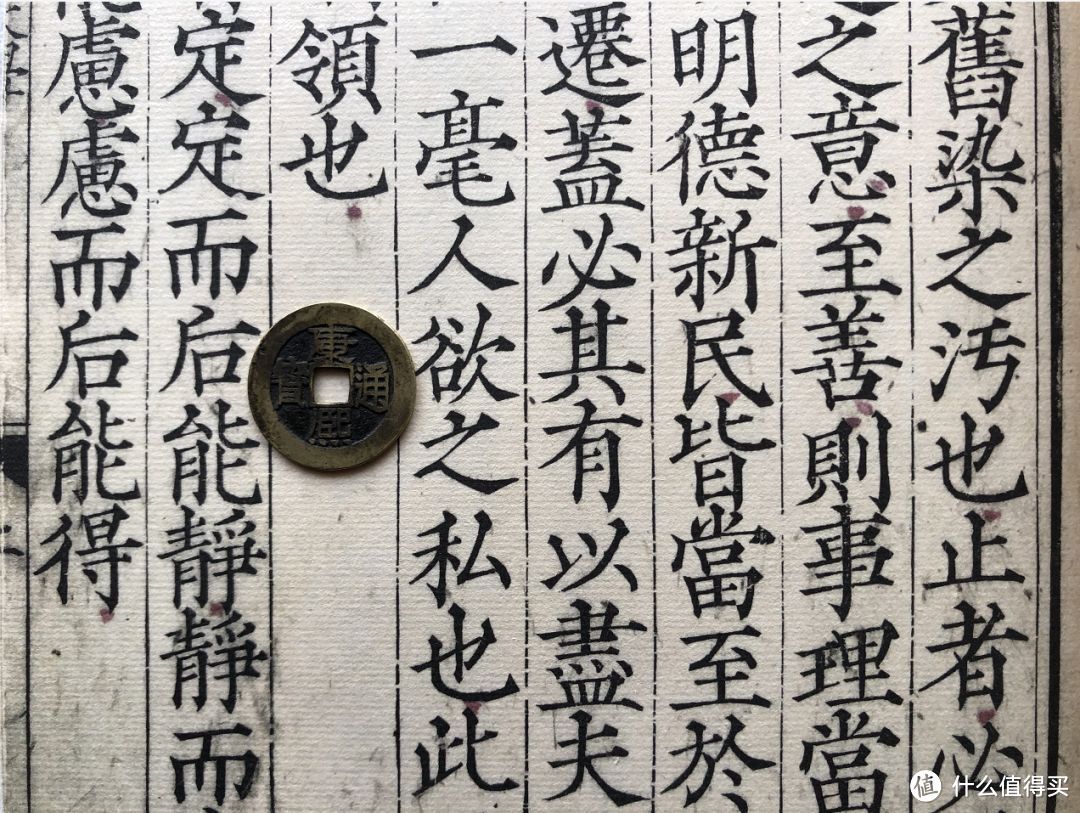 舊染之汚也止者必
之意至善則事理當
明德新民皆當至於
遷蓋必其有以盡夫
一毫人欲之私也此
領也
定定而后能靜靜而
慮慮而后能得
康熙通寶
值 什么值得买